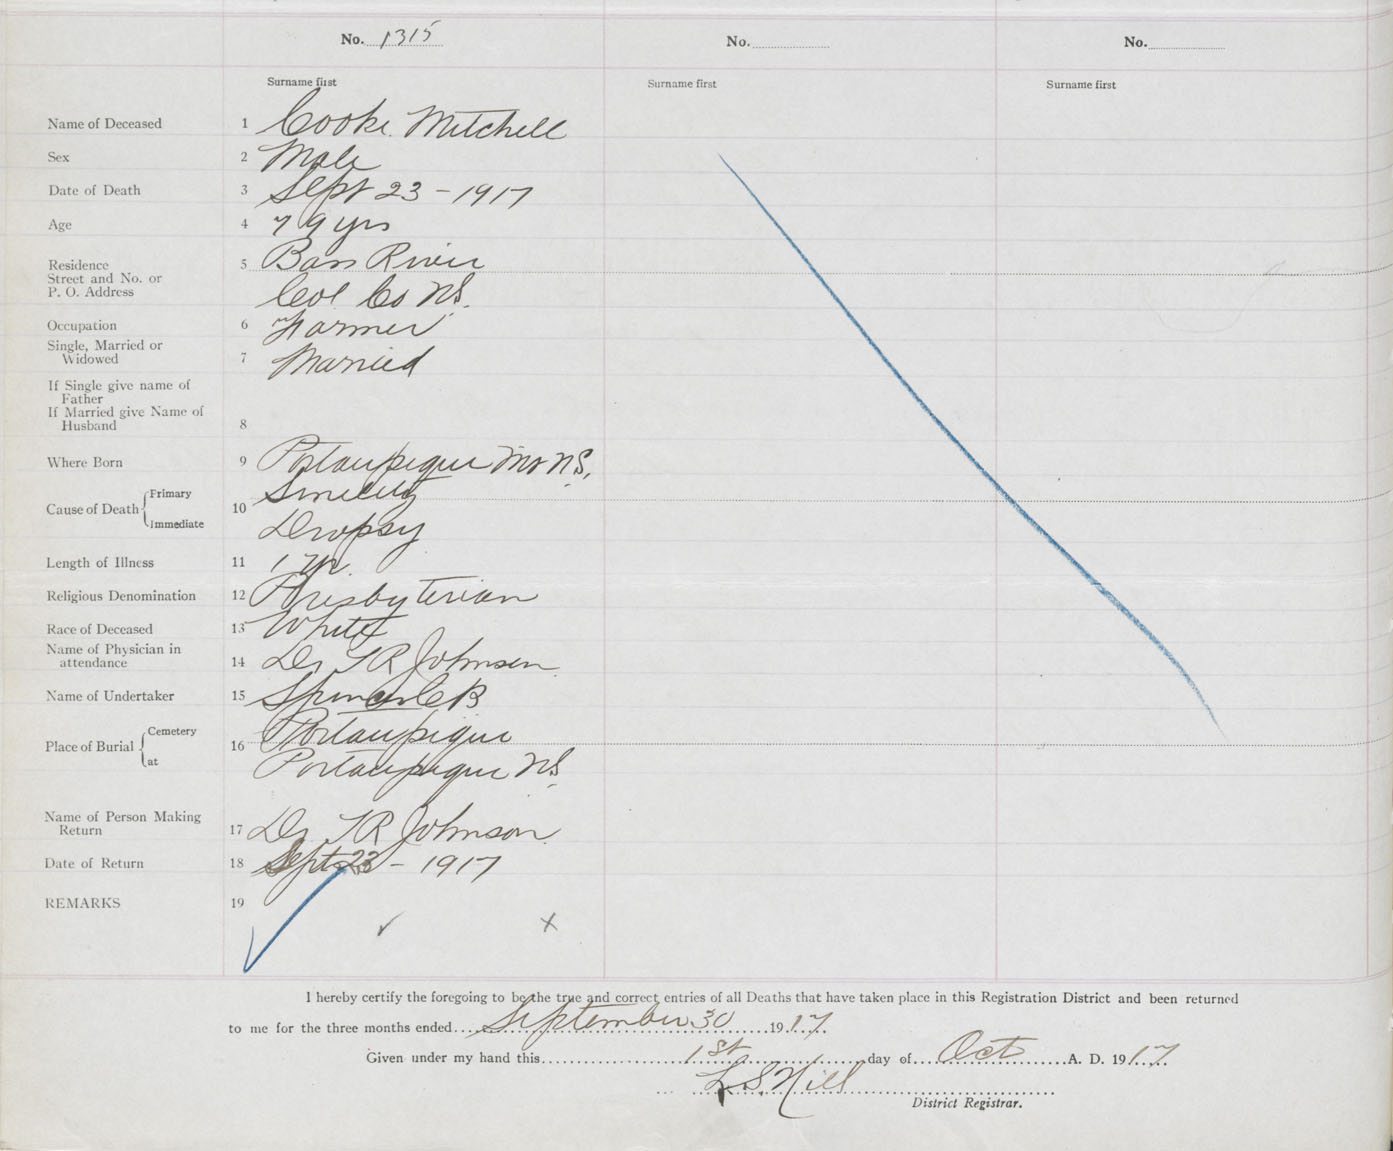 No. 1315 No. No.
Surname first Surname first Surname first
Name of Deceased 1 Cooke Mitchell
Sex 2 Male
Date of Death 3 Sept 23 - 1917
Age 4 79 yrs
Residence 5 Bass River
Street and No. or
P. O. Address Col Co NS.
Occupation 6 Farmer
Single, Married or
Widowed 7 Married
If Single give name of
Father
If Married give Name of
Husband 8
Where Born 9 Portaupique Mo NS.
Cause of Death Primary 10 Senility
Immediate Dropsy
Length of Illness 11 1 yr.
Religious Denomination 12 Presbyterian
Race of Deceased 13 White
Name of Physician in
attendance 14 Dr TR Johnson
Name of Undertaker 15 Spencer CB
Place of Burial Cemetery 16 Portaupique
at Portaupique NS.
Name of Person Making
Return 17 Dr TR Johnson
Date of Return 18 Sept 23 - 1917
REMARKS 19
I hereby certify the foregoing to be the true and correct entries of all Deaths that have taken place in this Registration District and been returned
to me for the three months ended September 30 1917
Given under my hand this 1st day of Oct A. D. 1917
L S. Hill
District Registrar.